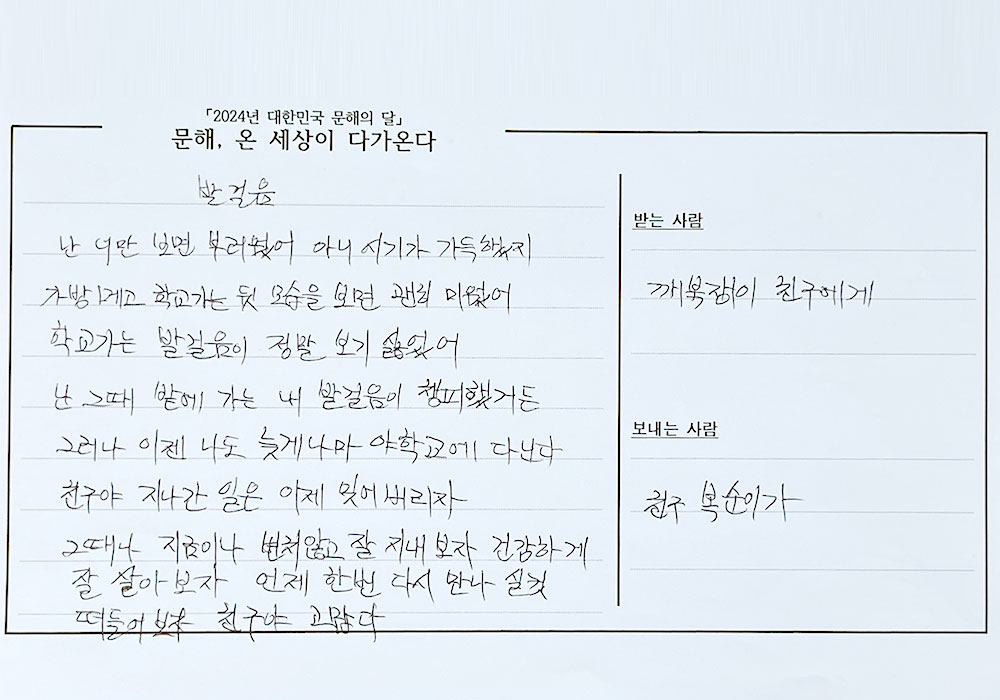 「2024년 대한민국 문해의 달」
문해, 온 세상이 다가온다
발걸음
난 너만 보면 부러웠어 아니 시기가 가득했지
가방 메고 학교가는 뒷 모습을 보면 괜히 미웠어
학교가는 발걸음이 정말 보기 싫었어
난 그때 밭에 가는 내 발걸음이 챙피했거든
그러나 이젠 나도 늦게나마 야학교에 다닌다
친구야 지나간 일은 이제 잊어버리자
그때나 지금이나 변치않고 잘 지내 보자 건강하게
잘 살아 보자 언제 한번 다시 만나 실컷
떠들어 보자 친구야 고맙다
받는 사람
깨복쟁이 친구에게
보내는 사람
친구 복순이가